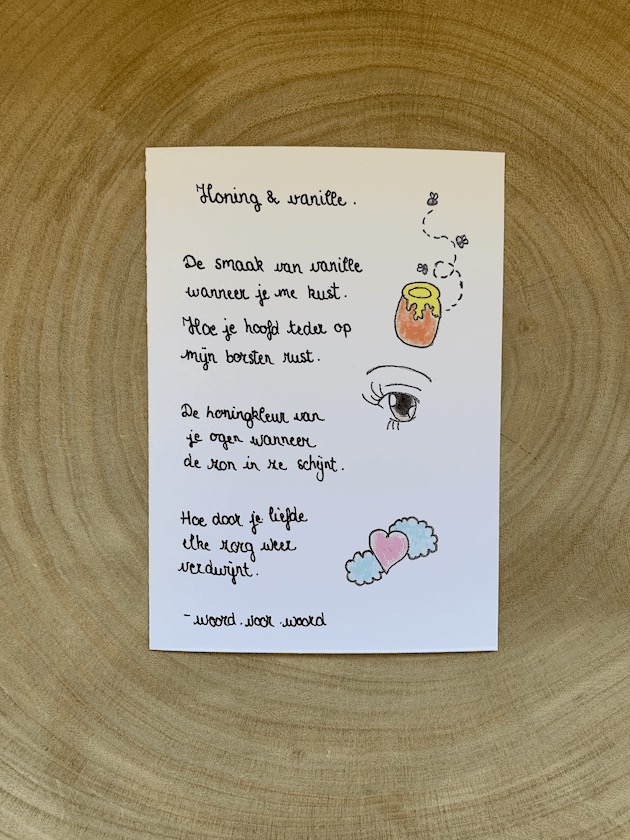 Honing & vanille.
De smaak van vanille
wanneer je me kust.
Hoe je hoofd teder op
mijn borsten rust.
De honingkleur van
je ogen wanneer
de zon in ze schijnt.
Hoe door je liefde
elke zorg weer
verdwijnt.
- woord.voor.woord